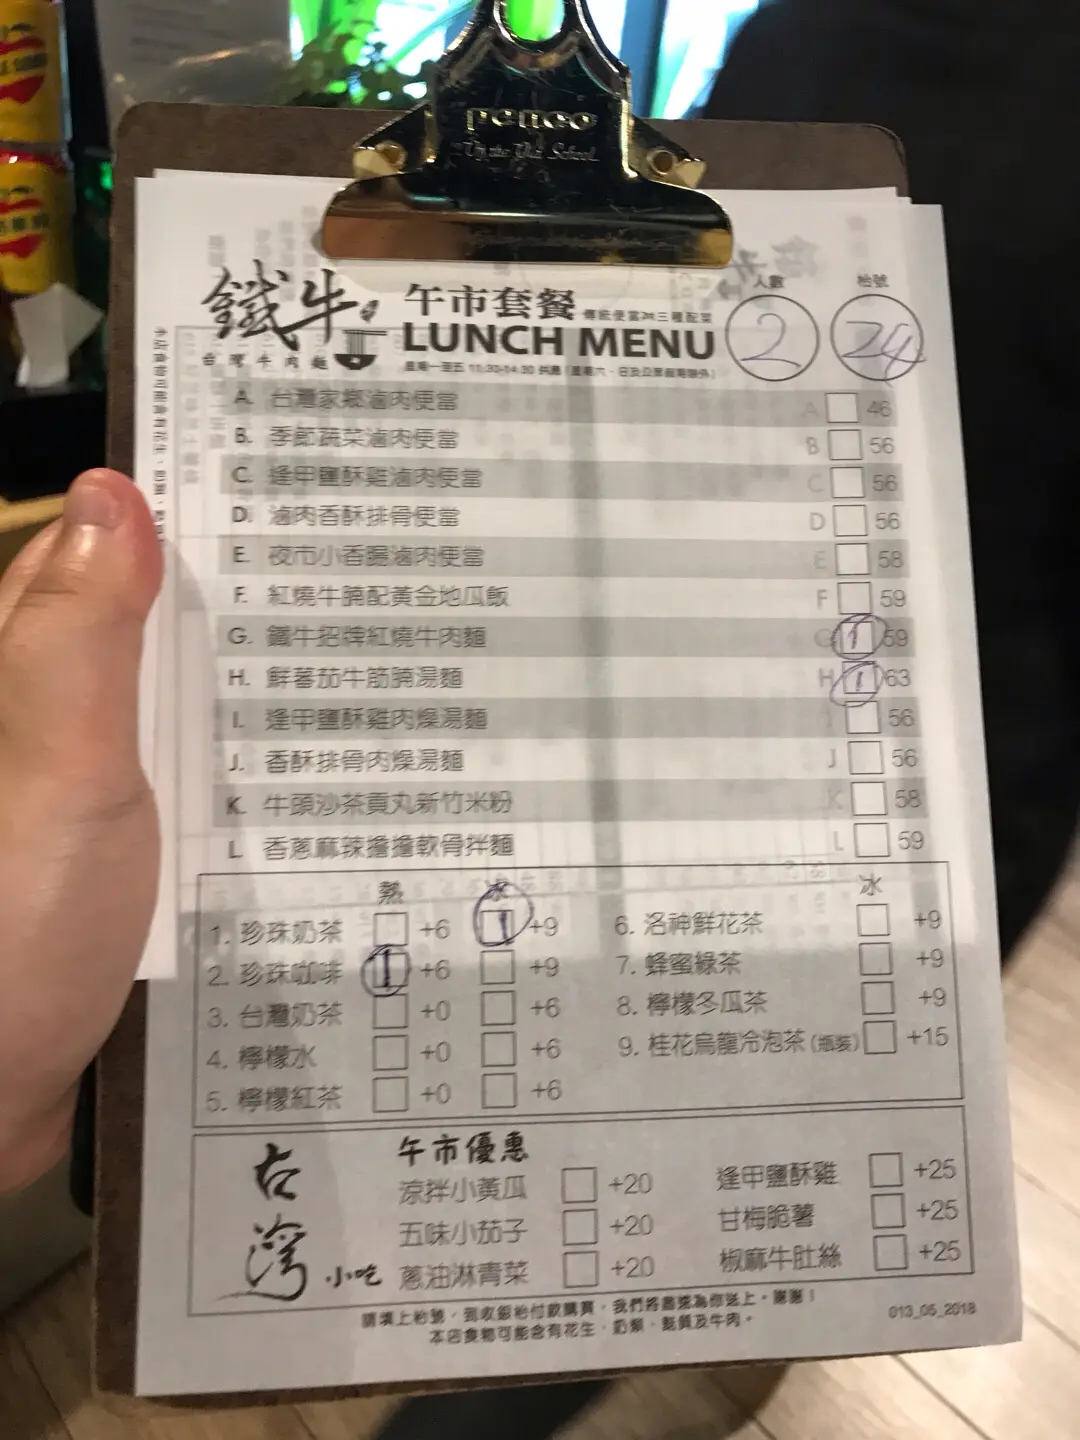 penco
人數
枱號
鐵牛
台灣牛肉麵
午市套餐 傳統便當以三種配菜
LUNCH MENU
星期一至五 11:30-14:30 供應 (星期六、日及公眾假期除外)
2
24
A. 台灣家鄉滷肉便當 A 46
B. 季節蔬菜滷肉便當 B 56
C. 逢甲鹽酥雞滷肉便當 C 56
D. 滷肉香酥排骨便當 D 56
E. 夜市小香腸滷肉便當 E 58
F. 紅燒牛腩配黃金地瓜飯 F 59
G. 鐵牛招牌紅燒牛肉麵 G 1 59
H. 鮮蕃茄牛筋腩湯麵 H 1 63
I. 逢甲鹽酥雞肉燥湯麵 I 56
J. 香酥排骨肉燥湯麵 J 56
K. 牛頭沙茶貢丸新竹米粉 K 58
L 香蔥麻辣擔擔軟骨拌麵 L 59
熱 冰 冰
1. 珍珠奶茶 +6 1 +9 6. 洛神鮮花茶 +9
2. 珍珠咖啡 1 +6 +9 7. 蜂蜜綠茶 +9
3. 台灣奶茶 +0 +6 8. 檸檬冬瓜茶 +9
4. 檸檬水 +0 +6 9. 桂花烏龍冷泡茶 (瓶裝) +15
5. 檸檬紅茶 +0 +6
台灣小吃
午市優惠
涼拌小黃瓜 +20 逢甲鹽酥雞 +25
五味小茄子 +20 甘梅脆薯 +25
蔥油淋青菜 +20 椒麻牛肚絲 +25
請填上枱號，到收銀枱付款購買，我們將盡速為你送上。謝謝！
本店食物可能含有花生、奶類、麩質及牛肉。
013_05_2018